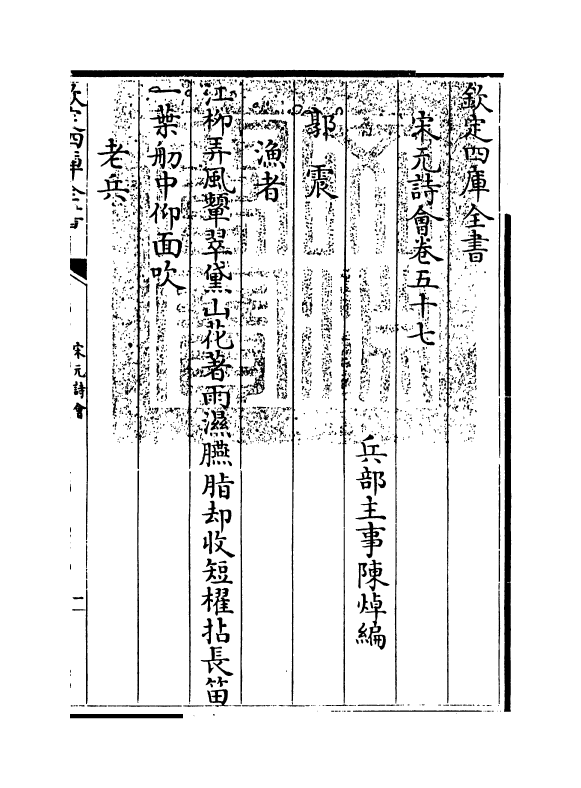 欽定四庫全書
宋元詩會卷五十七
兵部主事陳焯編
郭震
漁者
江柳弄風顰翠黛山花著雨濕臙脂却收短櫂拈長笛
一葉舠中仰面吹
老兵
欽定四庫全書
宋元詩會